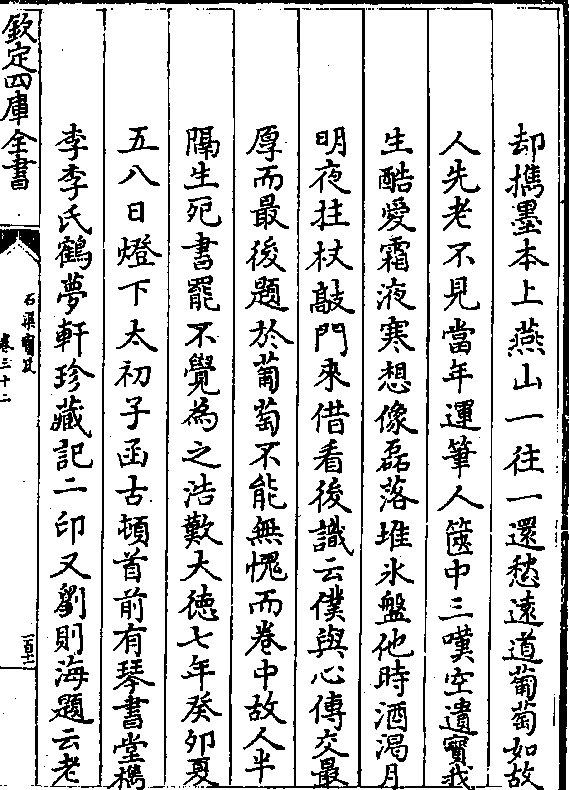 却攜墨本上燕山一往一還愁遠道葡萄如故
人先老不見當年運筆人篋中三嘆空遺寶我
生酷愛霜液寒想像磊落堆氷盤他時酒渴月
明夜拄杖敲門來借看後識云僕與心傳交最
厚而最後題於葡萄不能無愧而卷中故人半
隔生死書罷不覺為之浩歎大徳七年癸卯夏
五八日燈下太初子函古頓首前有琴書堂檇
李李氏鶴夢軒珍藏記二印又劉則海題云老
欽定四庫全書
石渠寳笈
卷三十二